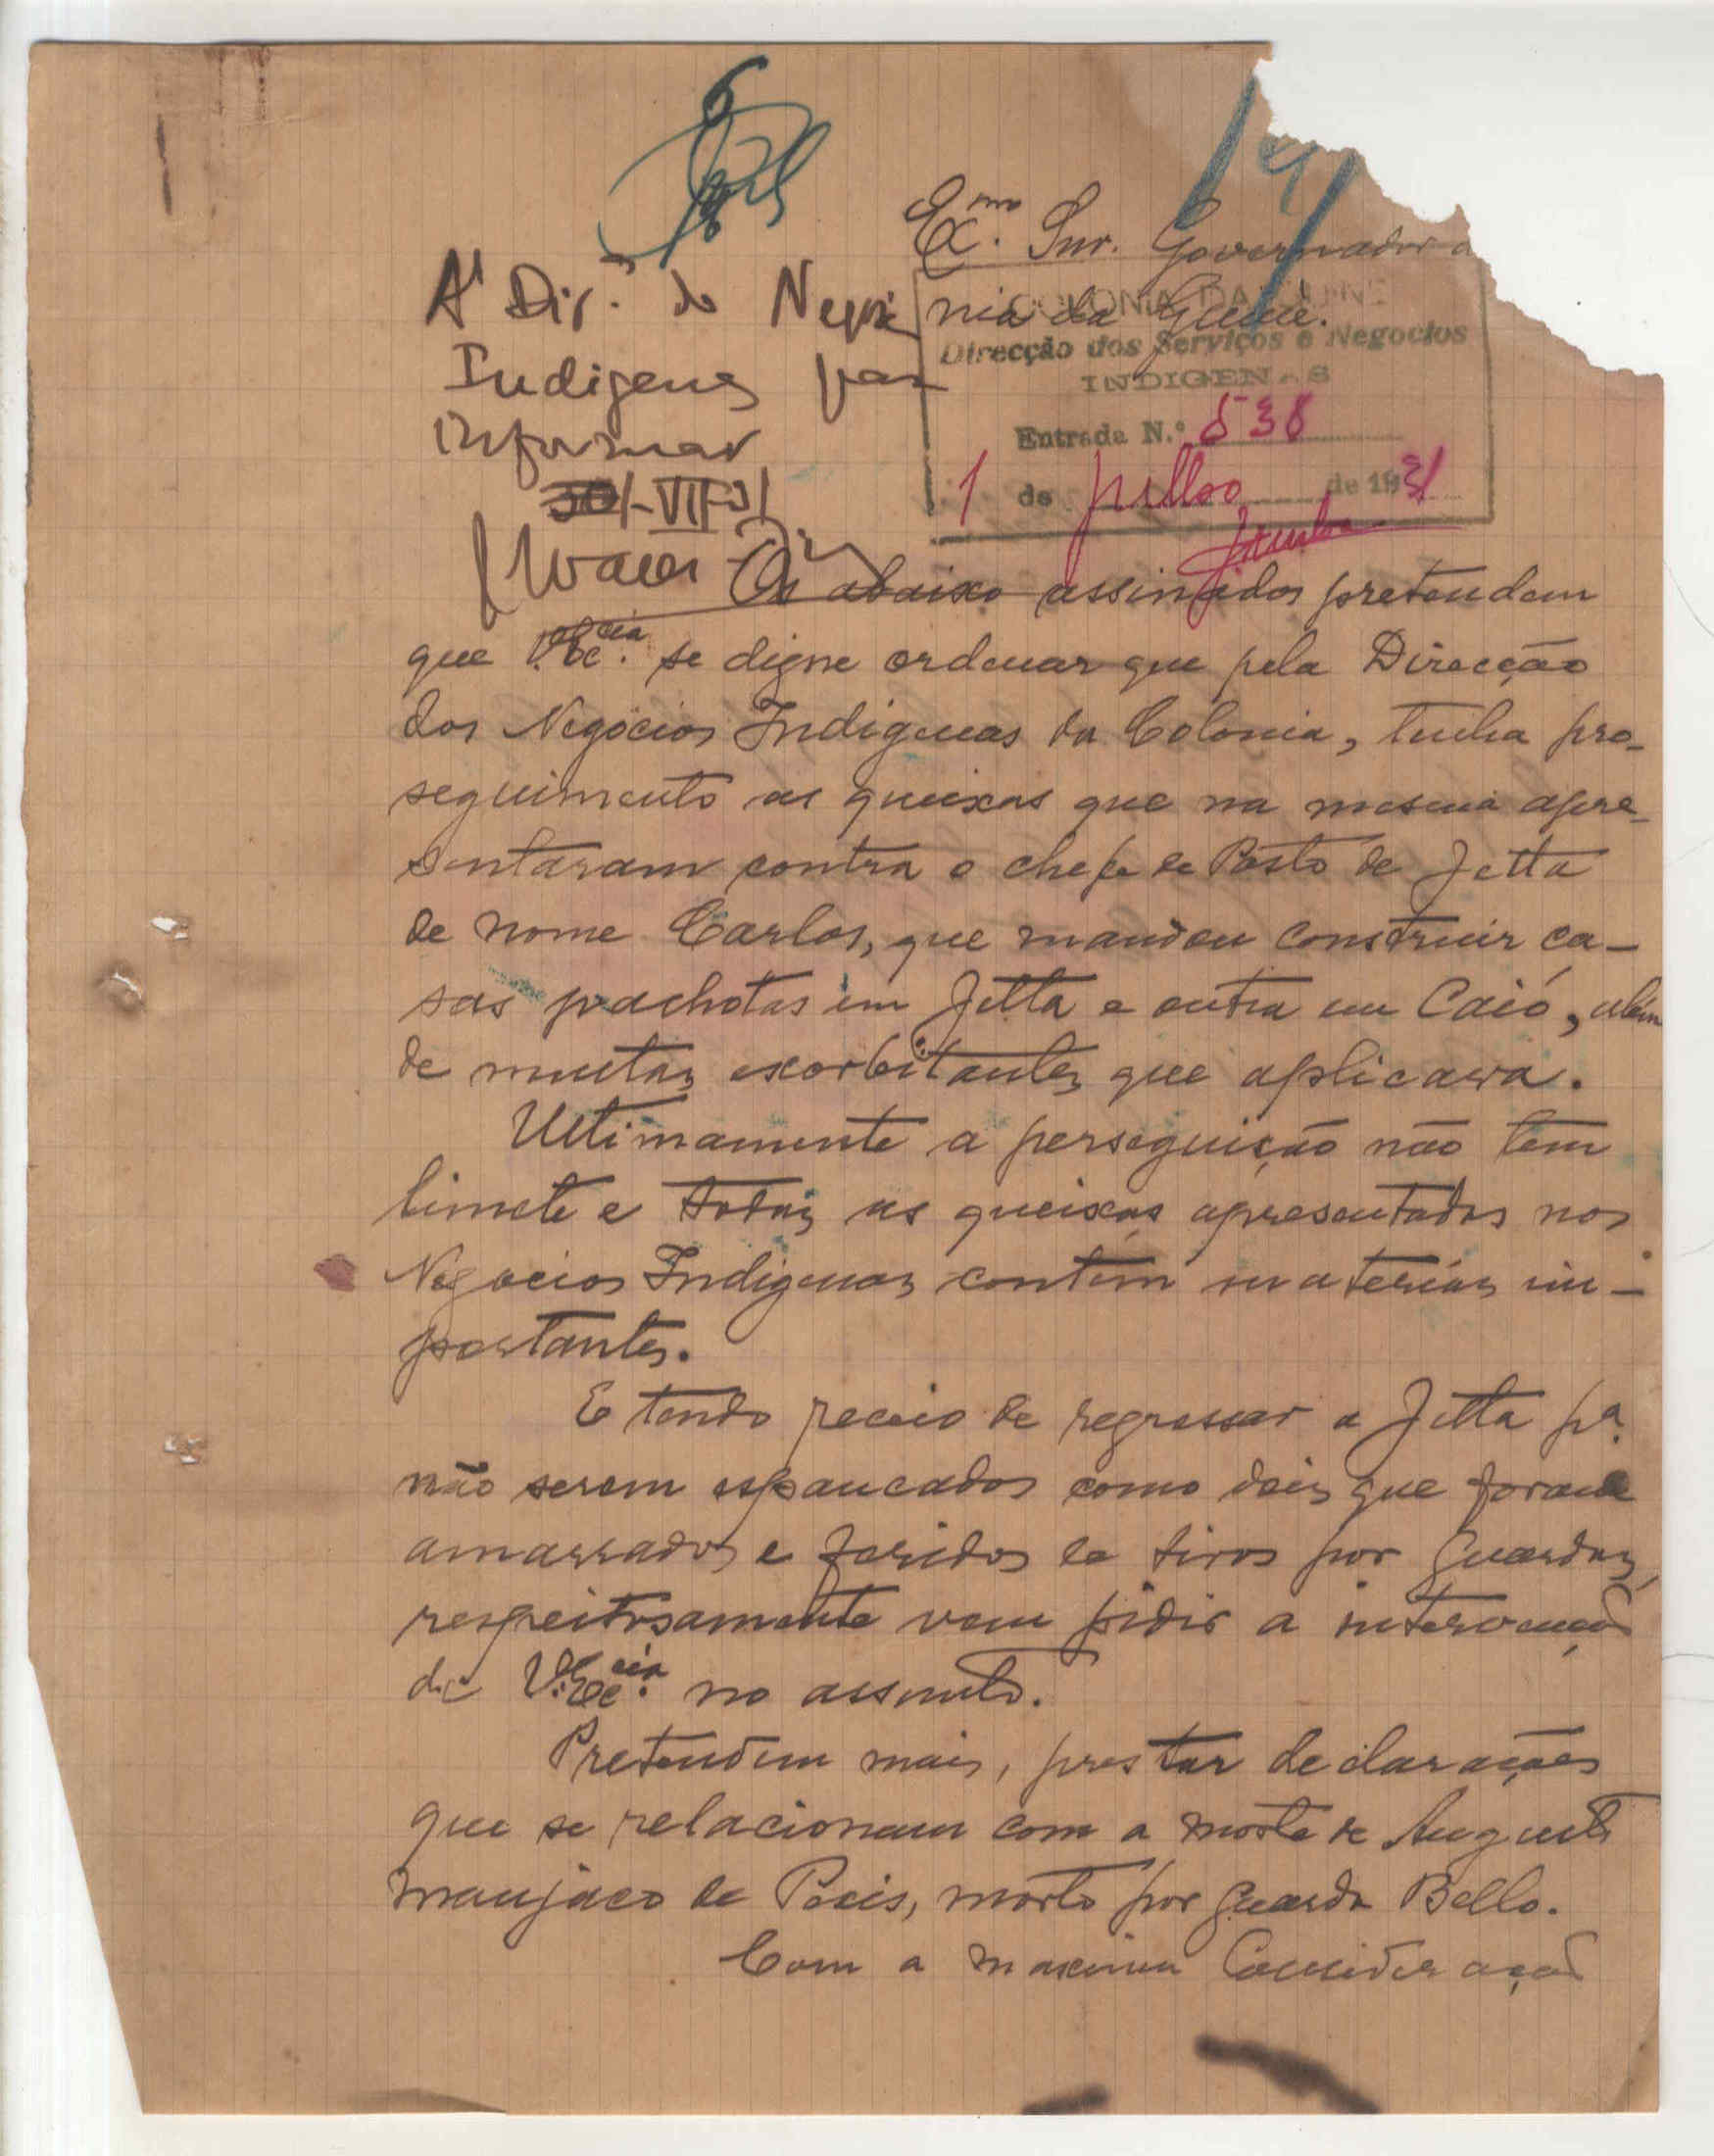 Exmo. Snr. Governador
nia da Guiné.
A' Dir. de
Indigenas para
informar
-VII-31
COLONIA DA GUINÉ
Direcção dos Serviços e Negocios
INDIGENAS
Entrada N.º 538
1 de julho de 1931
Os abaixo assinados pretendem
que V. Excia. se digne ordenar que pela Direcção
dos Negócios Indigenas da Colonia, tenha pro-
seguimento as queixas que na mesma apre-
sentaram contra o chefe de Posto de Jetta
de nome Carlos, que mandou construir ca-
sas em Jetta e outra em Caió, além
de muitas exorbitantes que aplicara.
Ultimamente a perseguição não tem
limete e todas as queixas apresentadas nos
Negocios Indigenas contem materias im-
portantes.
E tendo receio de regressar a Jetta pa.
não serem espancados como dois que foram
amarrados e feridos de tiros por guardas,
respeitosamente vem pidir a intervenção
de V. Excia. no assunto.
Pretendem mais, prestar declarações
que se relacionam com a morte de Augusto
manjaco de Pecis, morto por guarda Bello.
Com a maxima Consideração